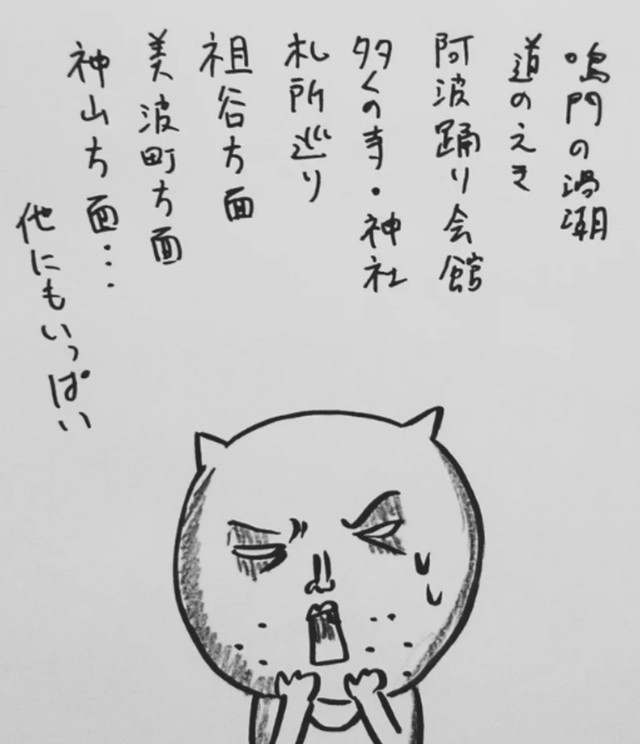 鳴門の渦潮
道のえき
阿波踊り会館
多くの寺・神社
札所巡り
祖谷方面
美波町方面
神山方面…
他にもいっぱい